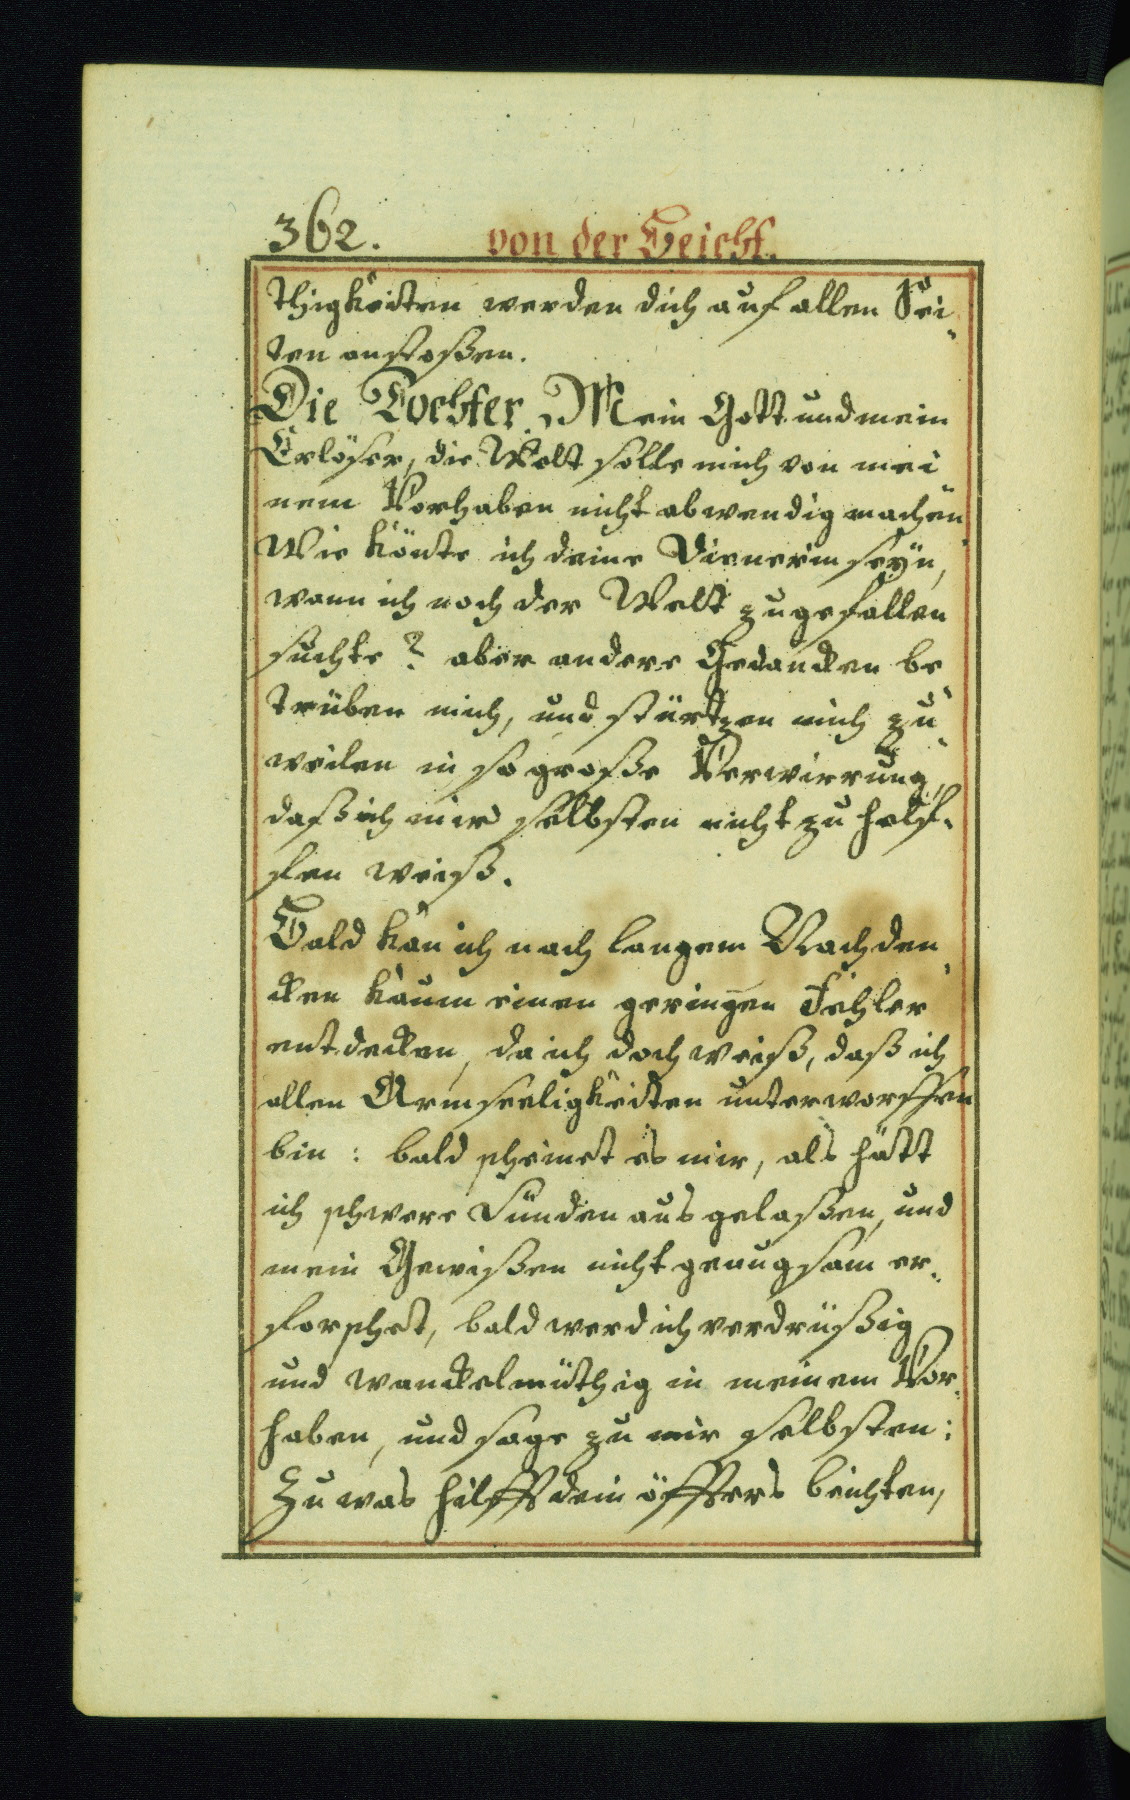 362. von der Beicht.
thigkeiten werden dich auf allen Sei„
ten anstoßen.
Die Tochter. Mein Gott und mein
Erlöser, die Welt solle mich von mei„
nem Vorhaben nicht abwendig machen.
Wie könte ich deine Dienerin seyn,
wann ich noch der Welt zugefallen
suchte? aber andere Gedancken be„
trüben mich, und stürtzen mich zu„
weilen in so große Verwirrung,
daß ich mir selbsten nicht zu helf„
fen weiß.
Bald kan ich nach langem Nachden„
cken kaum einen geringen Fehler
entdecken, da ich doch weiß, daß ich
allen Armseeligkeiten unterworffen
bin: bald scheinet es mir, als hätt
ich schwere Sünden ausgelaßen, und
mein Gewißen nicht genugsam er„
forschet, bald werd ich verdrüßig
und wanckelmüthig in meinem Vor„
haben, und sage zu mir selbsten:
Zu was hilfft dein öffters beichten,